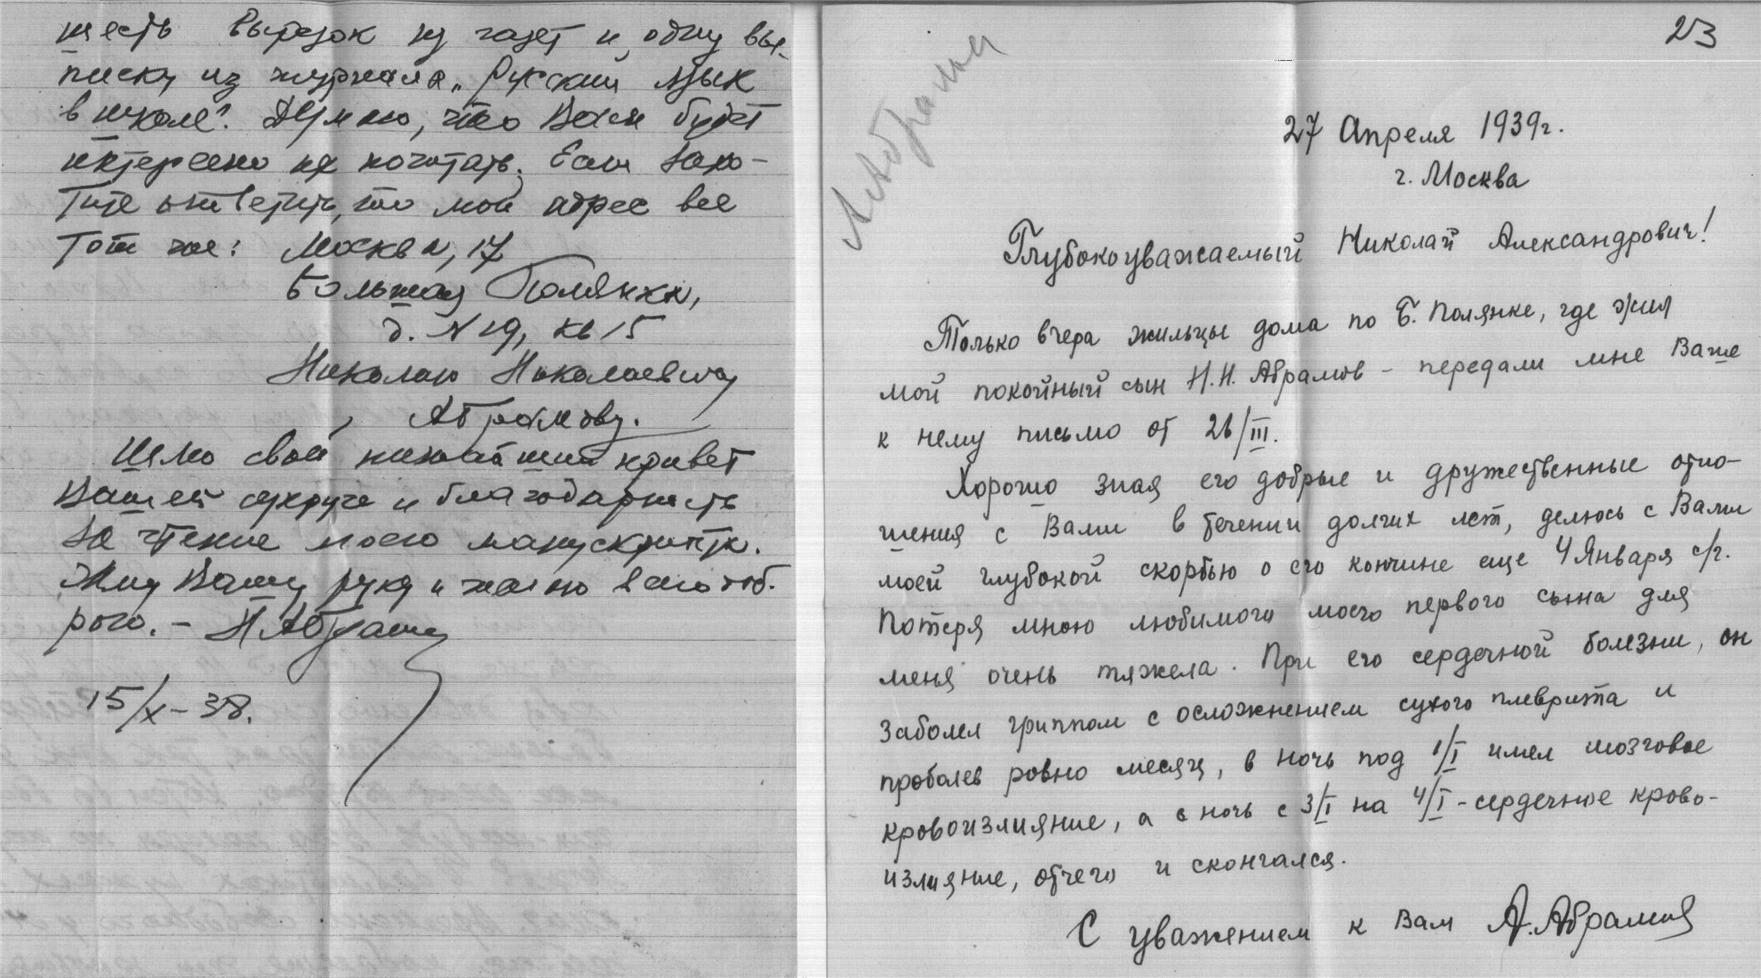 шесть вырезок из газет и одну вы-
писку из журнала „Русский язык
в школе“. Думаю, что Вам будет
интересно их почитать. Если захо-
тите ответить, то мой адрес все
тот же: Москва, 17
Большая Полянка,
д. N 19, кв 15
Николаю Николаевичу
Абрамову.
Шлю свой нижайший привет
Вашей супруге и благодарность
за чтение моего манускрипта.
Жму Вашу руку и желаю всего доб-
рого. – Н Абрамов
15/X – 38.
23
А Абрамов
27 Апреля 1939г.
г. Москва
Глубокоуважаемый Николай Александрович!
Только вчера жильцы дома по Б. Полянке, где жил
мой покойный сын Н.Н. Абрамов – передали мне Ваше
к нему письмо от 26/III.
Хорошо зная его добрые и дружественные отно-
шения с Вами в течении долгих лет, делюсь с Вами
моей глубокой скорбью о его кончине еще 4 Января с/г.
Потеря мною любимого моего первого сына для
меня очень тяжела. При его сердечной болезни, он
заболел гриппом с осложнением сухого плеврита и
проболев ровно месяц, в ночь под 1/I имел мозговое
кровоизлияние, а в ночь с 3/I на 4/I – сердечное крово-
излияние, отчего и скончался.
С уважением к Вам А. Абрамов